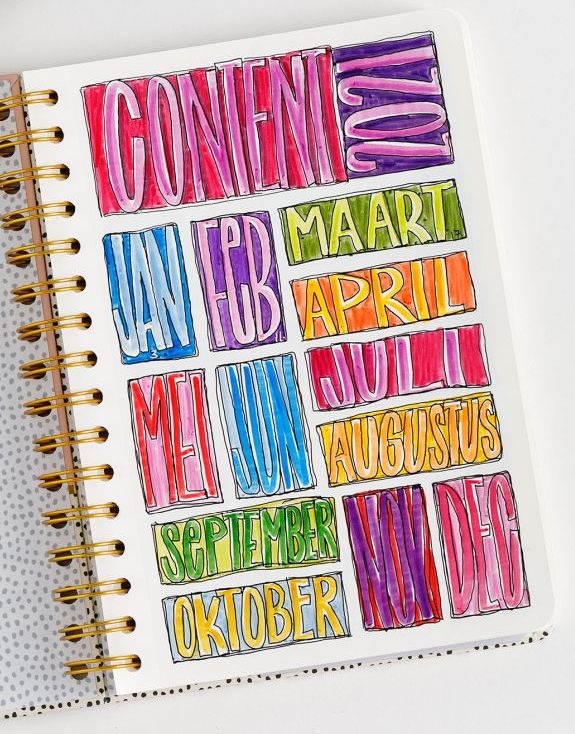 CONTENT 2021
JAN
3
FEB
MAART
APRIL
MEI
JUN
JULI
AUGUSTUS
SEPTEMBER
OKTOBER
NOV
DEC